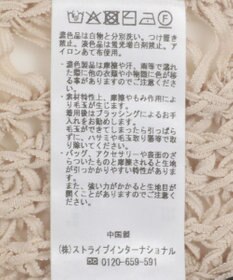 濃色品は白物と分別洗い。つけ置き
禁止。淡色品は蛍光増白剤禁止。ア
イロンあて布使用。
・濃色製品は摩擦や汗、雨等で濡れ
た際に他の衣類や小物類に色が移
る事がありますのでご注意くださ
い。
・素材特性上、摩擦やもみ作用により
毛玉が生じます。
着用後はブラッシングによるお手
入れをお勧めします。
毛玉ができてしまったら引っぱら
ずに、ハサミや毛玉取り器等で取
り除いてください。
・バッグ、アクセサリーや表面のざ
らついたものと摩擦されると生地
が引っかかりやすい特性がありま
す。
また、強い力がかかると生地目が
開くことがありますのでご注意
ください。
中国製
(株)ストライプインターナショナル
0120-659-591